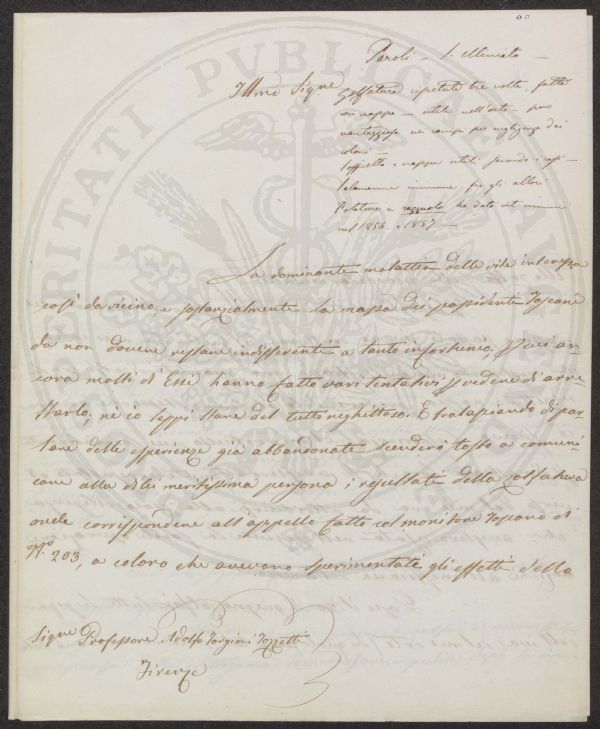 Paroli - S. Miniato -
Illmo Sigre
Zolfatura ripetuta tre volte, fatta
con nappa - utile nell'orto - poco
vantaggiosa nei campi per negligenza dei
coloni -
Soffietto e nappa utili secondo i casi -
Salamanna immune fra gli alberi
Potatura a ragguolo ha dato viti immuni
nel 1856. e 1857 -
La dominante malattia delle viti interessa
così da vicino e sostanzialmente la massa dei possidenti Toscani
da non dovere restare indifferenti a tanto infortunio; Quei an-
cora molti di Essi hanno fatto vari tentativi per vedere di arre-
starlo, nè io seppi stare del tutto neghittoso. E tralasciando di par-
lare delle esperienze già abbandonate scenderò tosto a comuni-
care alla di lei meritissima persona i resultati della zolfatura
onde corrispondere all'appello fatto col monitore Toscano di
No 203, a coloro che avevano sperimentati gli effetti della
Sigre Professore Adolfo Targioni Tozzetti
Firenze